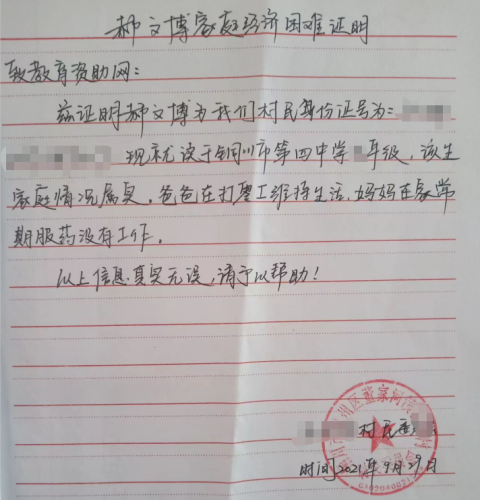 郝文博家庭经济困难证明
致教育资助网:
兹证明郝文博为我们村民身份证号为:
现就读于铜川市第四中学 年级,该生
家庭情况属实,爸爸在打零工维持生活,妈妈在家常
期服药没有工作。
以上信息真实无误,请予以帮助!
村民委
时间2021年9月29日